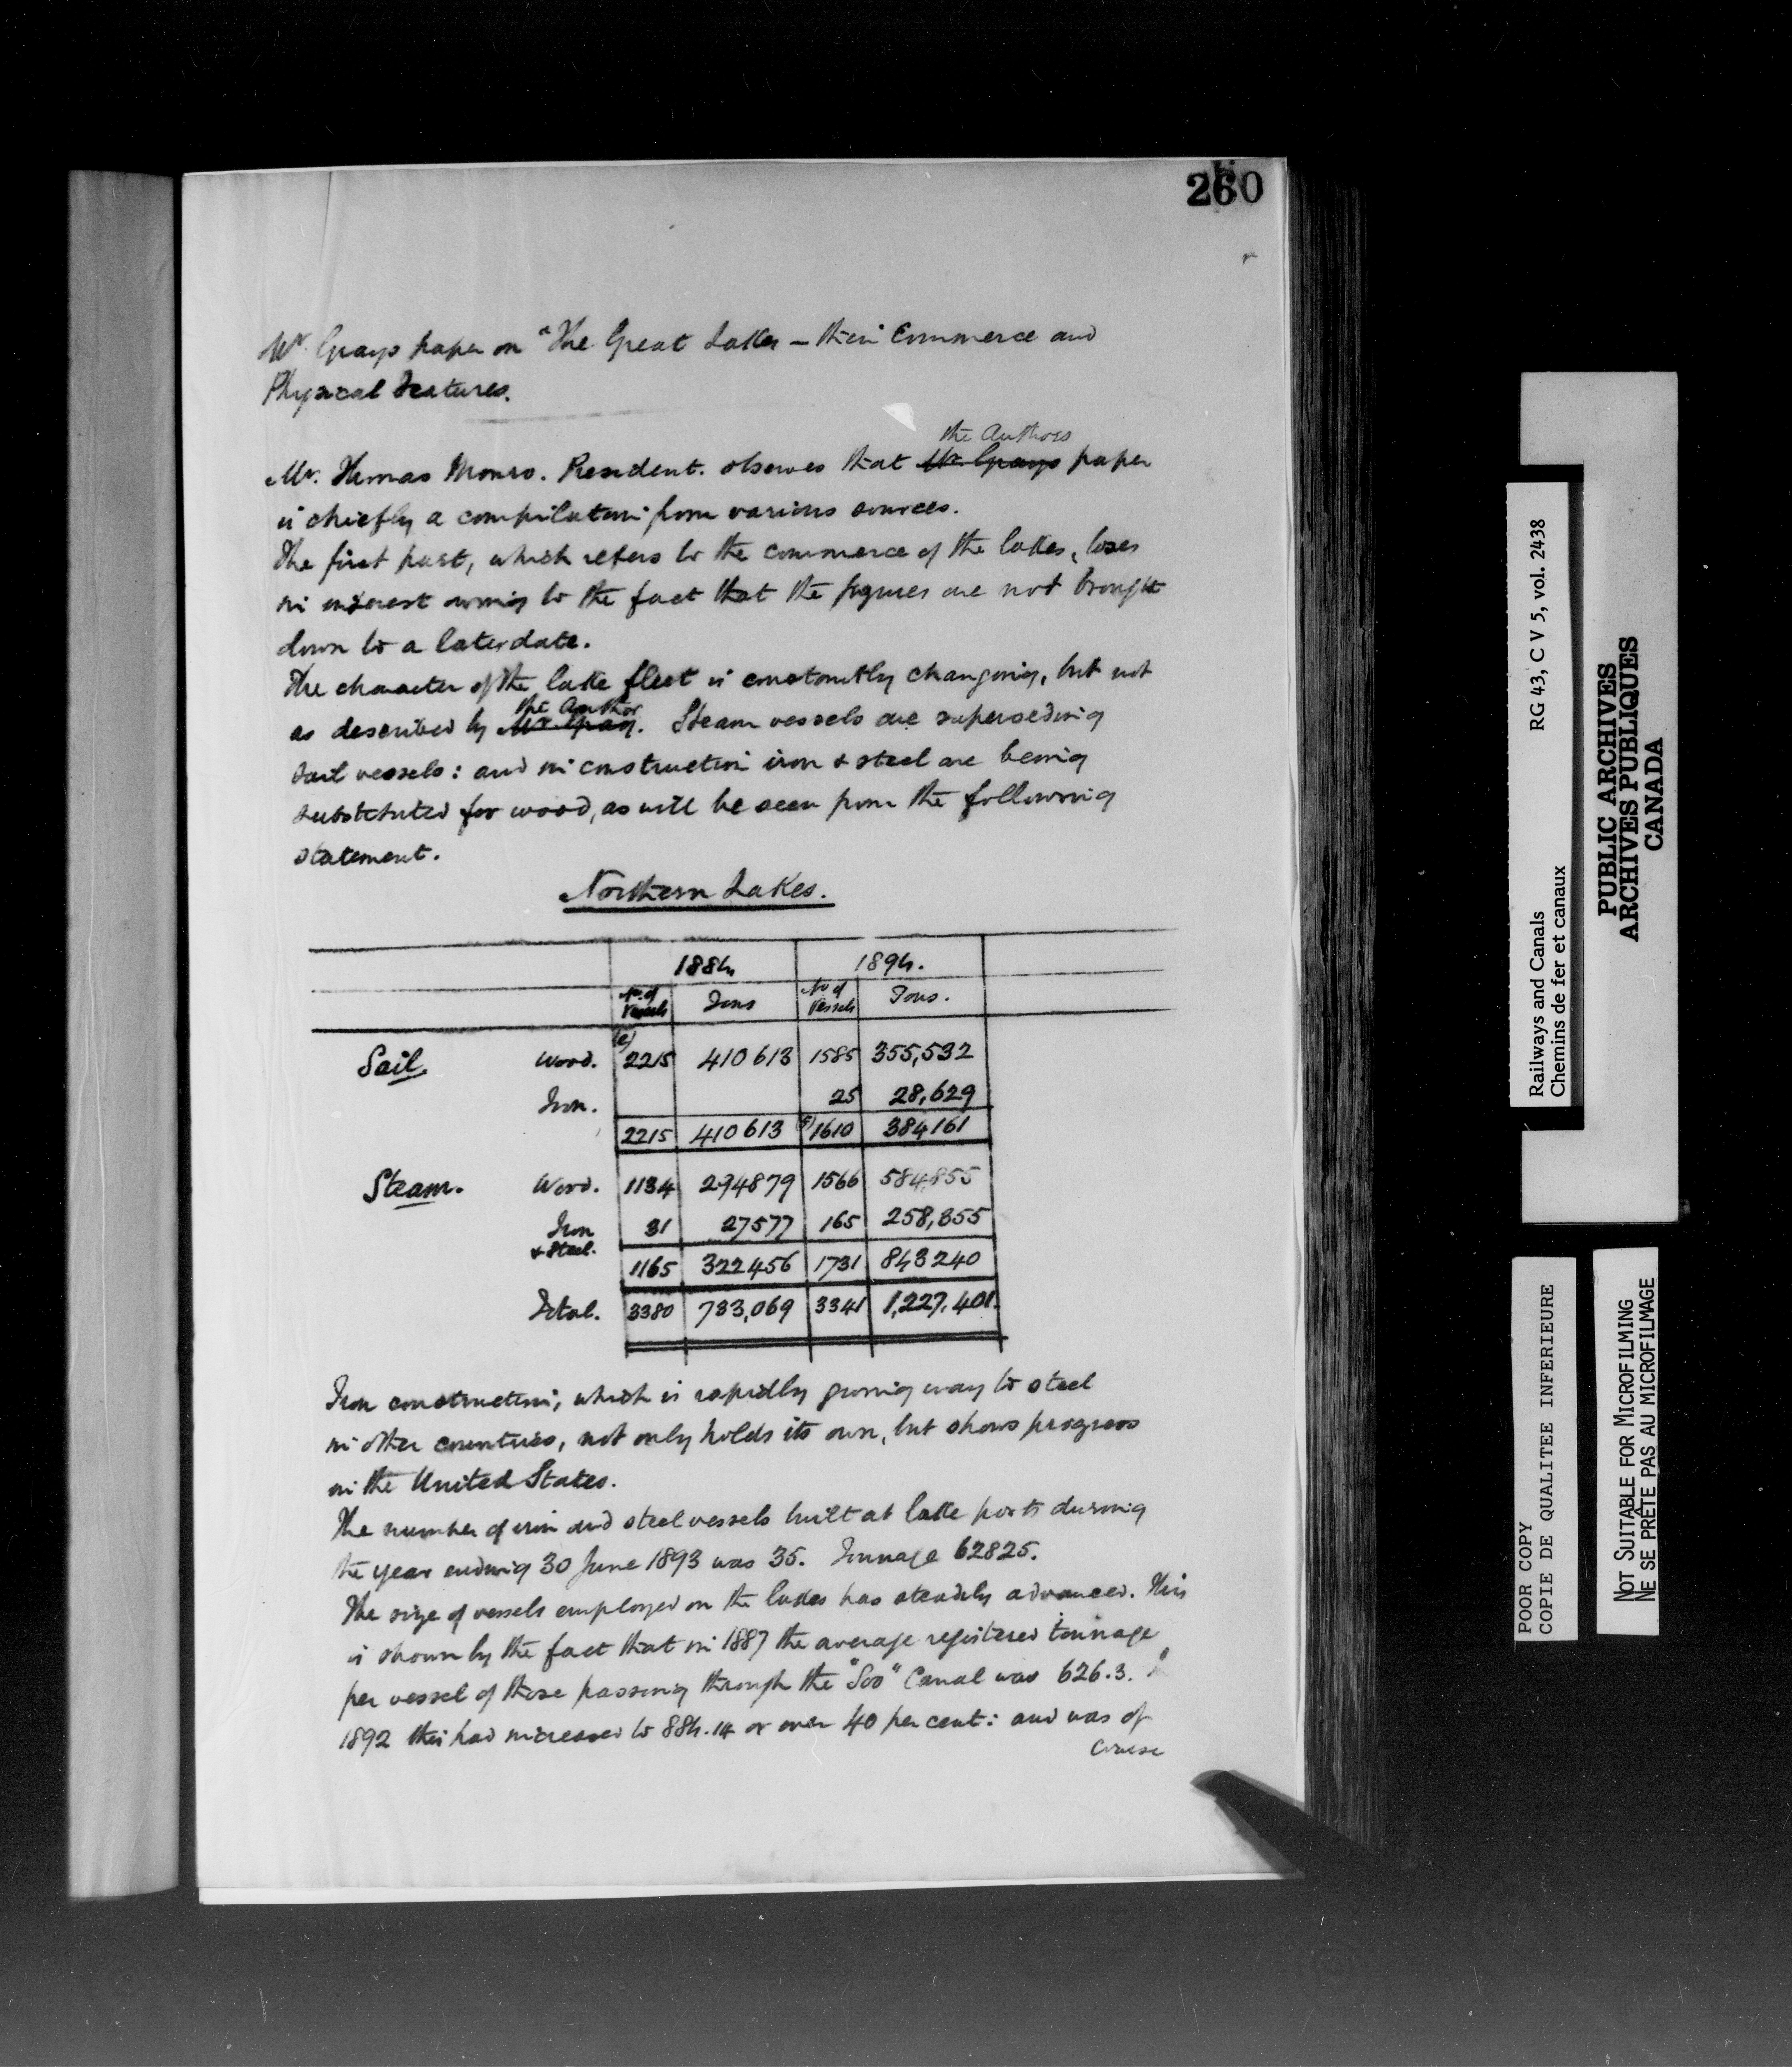 260
Mr. Grays paper on "The Great Lakes – their Commerce and
Physical Features.
the Authors
Mr. Thomas Monro. President. observes that Mr. Grays paper
is chiefly a compilation from various sources.
The first part, which refers to the commerce of the lakes, loses
in interest owing to the fact that the figures are not brought
down to a later date.
The character of the lake fleet is constantly changing, but not
the Author
as described by Mr. Gray. Steam vessels are superseding
sail vessels: and in construction iron & steel are being
substituted for wood, as will be seen from the following
statement.
Northern Lakes.
1884 1894.
No. of Vessels Tons No of Vessels Tons.
Sail. Wood. (e) 2215 410613 1585 355,532
Iron. 25 28,629
2215 410613 1610 384161
Steam. Wood. 1134 294879 1566 584,855
Iron & Steel. 31 27577 165 258,355
1165 322456 1731 843240
Total. 3380 733,069 3341 1,227,401.
Iron construction, which is rapidly giving way to steel
in other countries, not only holds its own, but shows progress
in the United States.
The number of iron and steel vessels built at lake ports during
the year ending 30 June 1893 was 35. Tonnage 62825.
The size of vessels employed on the lakes has steadily advanced. This
is shown by the fact that in 1887 the average registered tonnage
per vessel of those passing through the "Soo" Canal was 626.3. In
1892 this had increased to 884.14 or over 40 per cent: and was of
course
Railways and Canals RG 43, C V 5, vol. 2438
Chemins de fer et canaux
PUBLIC ARCHIVES
ARCHIVES PUBLIQUES
CANADA
POOR COPY
COPIE DE QUALITEE INFERIEURE
NOT SUITABLE FOR MICROFILMING
NE SE PRÊTE PAS AU MICROFILMAGE